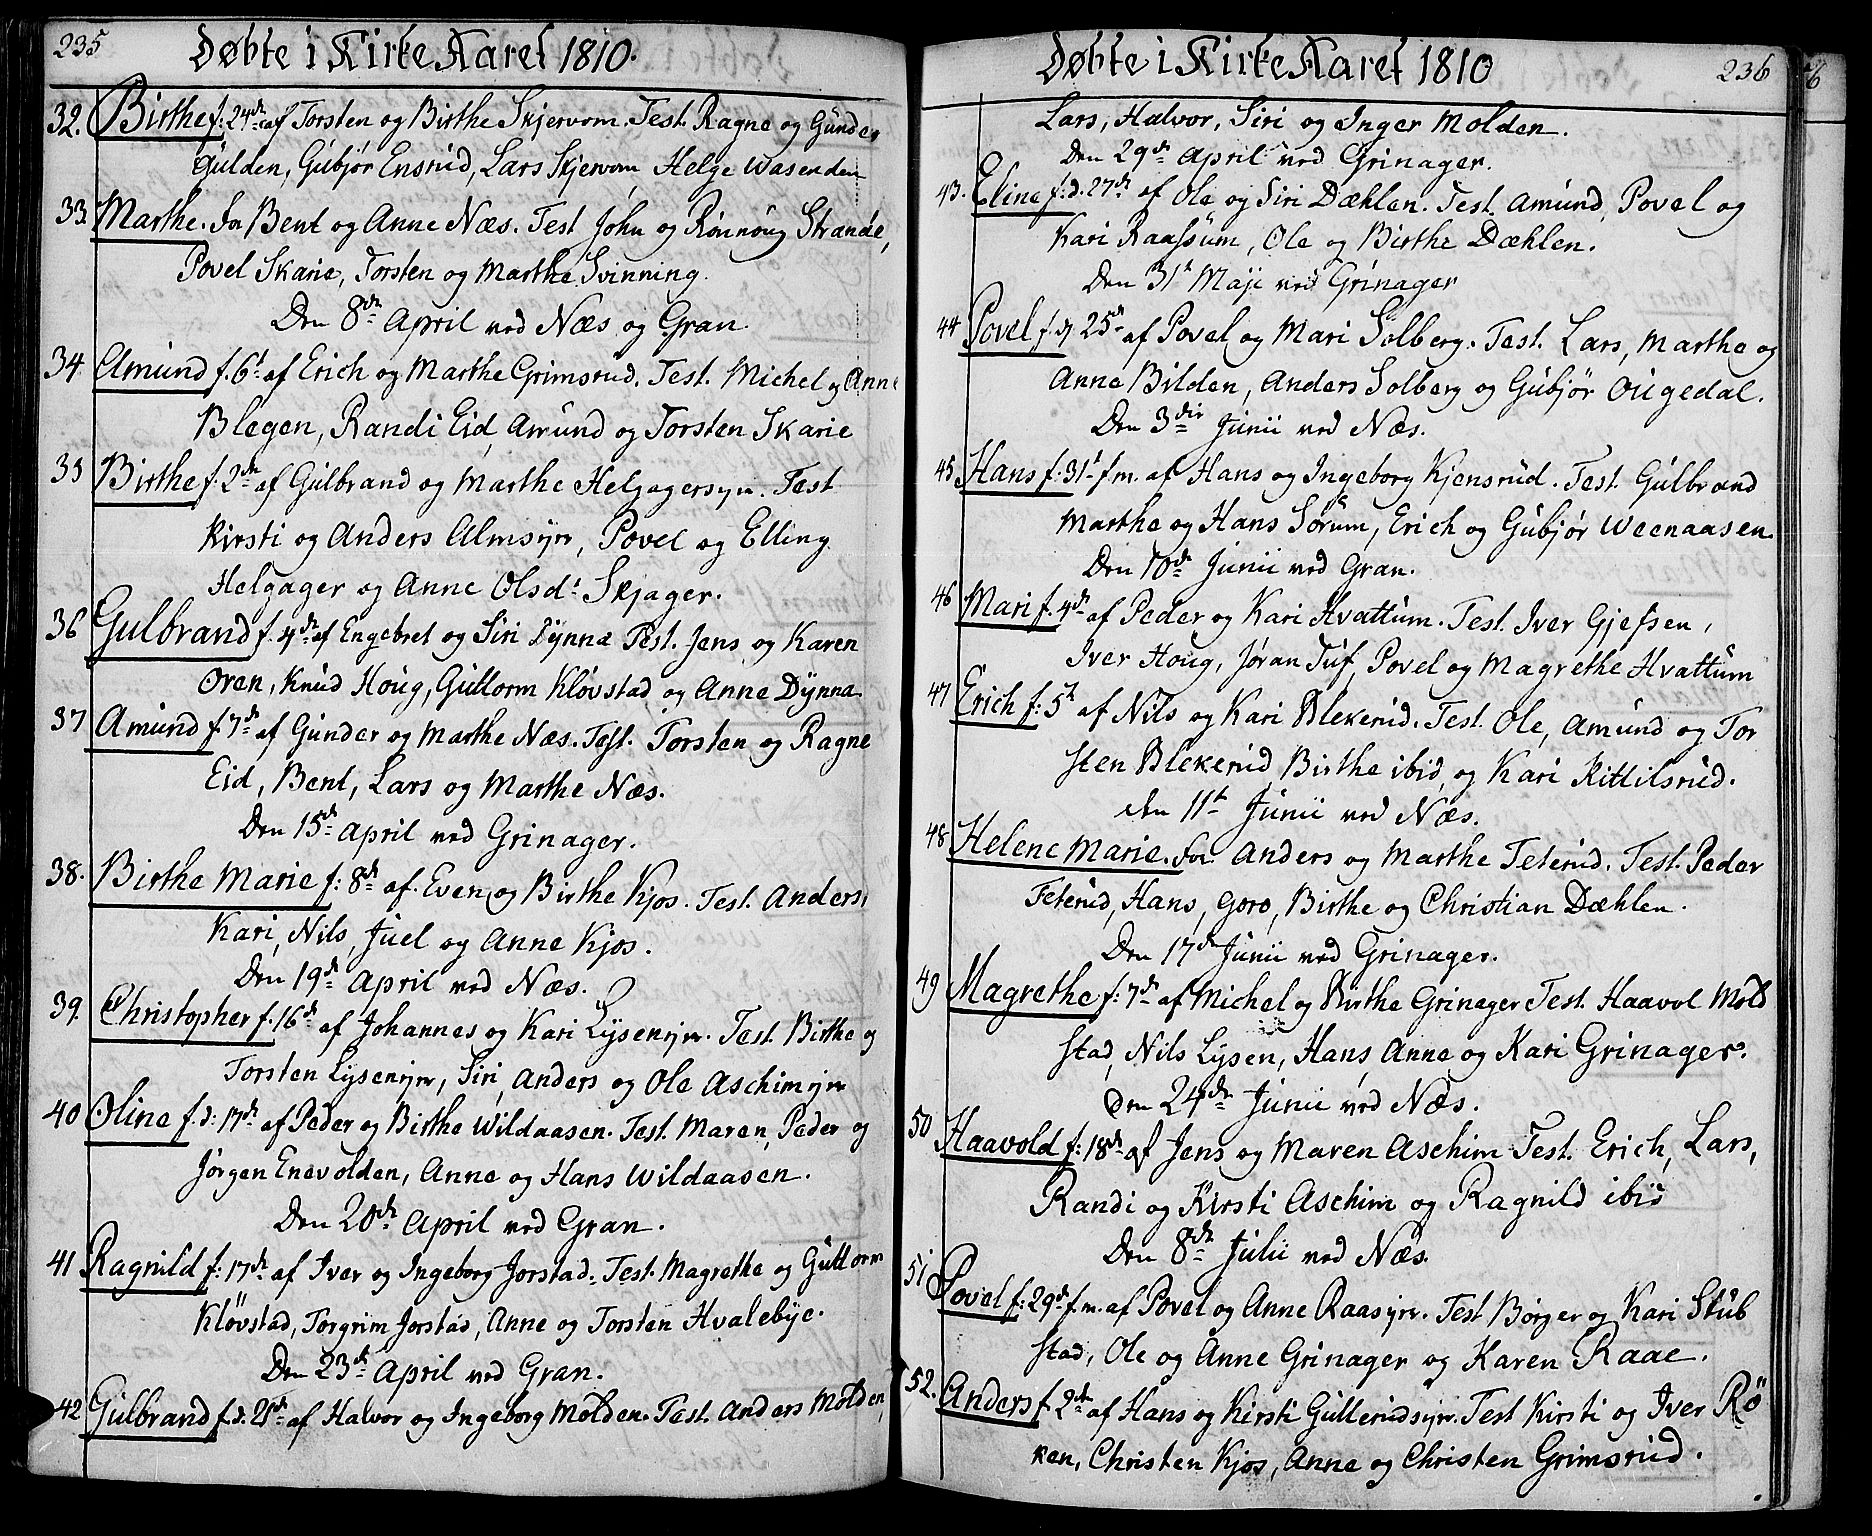 235
Døbte i Kirke Aaret 1810.
32. Birthe f: 24de af Torsten og Birthe Skjervom. Test. Ragne og Gunder
Gulden, Gubjør Ensrud, Lars Skjervom Helge Wasenden
33. Marthe. for Bent og Anne Næs. Test John og Rønnoug Strande,
Povel Skarie, Torsten og Marthe Svinning.
Den 8de April ved Næs og Gran.
34. Amund f. 6t af Erich og Marthe Grimsrud. Test. Michel og Anne
Blegen, Randi Eid, Amund og Torsten Skarie
35 Birthe f. 2de af Gulbrand og Marthe Helgagersyn. Test
Kirsti og Anders Almsyn, Povel og Elling
Helgager og Anne Olsdt Skjager.
36 Gulbrand f. 4de af Engebret og Siri Dynna Test. Jens og Karen
Oren, Knud Houg, Guttorm Kløvstad og Anne Dynna
37 Amund f. 7de af Gunder og Marthe Næs. Test. Torsten og Ragne
Eid, Bent, Lars og Marthe Næs.
Den 15de April ved Grinager.
38. Birthe Marie f: 8de af Even og Birthe Kjos. Test. Anders,
Kari, Nils, Juel og Anne Kjos.
Den 19de April ved Næs.
39. Christopher f. 16de af Johannes og Kari Lysenyn. Test Birthe og
Torsten Lysenyn, Siri, Anders og Ole Aschimyn
40 Oline f. d: 17de af Peder og Birthe Wildaasen. Test. Maren, Peder og
Jørgen Enevolden, Anne og Hans Wildaasen.
Den 20de April ved Gran.
41 Ragnild f: 17de af Iver og Ingeborg Jorstad. Test. Magrethe og Guttorm
Kløvstad, Torgrim Jorstad, Anne og Torsten Hvalebye.
Den 23de April ved Gran.
42 Gulbrand f. d. 21de af Halvor og Ingeborg Molden. Test. Anders Molden,
236
Døbte i Kirke Aaret 1810
Lars, Halvor, Siri og Inger Molden.
Den 29de April ved Grinager.
43. Eline f. d. 27de af Ole og Siri Dæhlen. Test. Amund, Povel og
Kari Raassum, Ole og Birthe Dæhlen.
Den 31t Maji ved Grinager
44 Povel f. d. 25de af Povel og Mari Solberg. Test. Lars, Marthe og
Anne Bilden, Anders Solberg og Gubjør Ougedal.
Den 3die Junii ved Næs.
45 Hans f. 31t f. m. af Hans og Ingeborg Kjensrud. Test. Gulbrand
Marthe og Hans Sorum, Erich og Gubjør Weenaasen.
Den 10de Junii ved Gran.
46 Mari f. 4de af Peder og Kari Hvattum. Test. Iver Gjefsen,
Iver Houg, Jøran Tuf, Povel og Magrethe Hvattum
47 Erich f: 5t af Nils og Kari Blekerud. Test. Ole, Amund og Tor
sten Blekerud Birthe ibid, og Kari Kittilsrud.
den 11te Junii ved Næs.
48 Helene Marie. for Anders og Marthe Teterud. Test. Peder
Teterud, Hans, Goro, Birthe og Christian Dæhlen.
Den 17de Junii ved Grinager.
49 Magrethe f: 7de af Michel og Birthe Grinager Test. Haavol Mold
stad, Nils Lysen, Hans, Anne og Kari Grinager.
den 24de Junii ved Næs.
50 Haavold f: 18de af Jens og Maren Aschim Test. Erich, Lars,
Randi og Kirsti Aschim og Ragnild ibid
Den 8de Julii ved Næs.
51 Povel f: 29de f. m. af Povel og Anne Raasyn. Test Børger og Kari Stub
stad, Ole og Anne Grinager og Karen Raae.
52. Anders f. 2de af Hans og Kirsti Gullerudsyn. Test Kirsti og Iver Rö
ken, Christen Kjos, Anne og Christen Grimsrud.